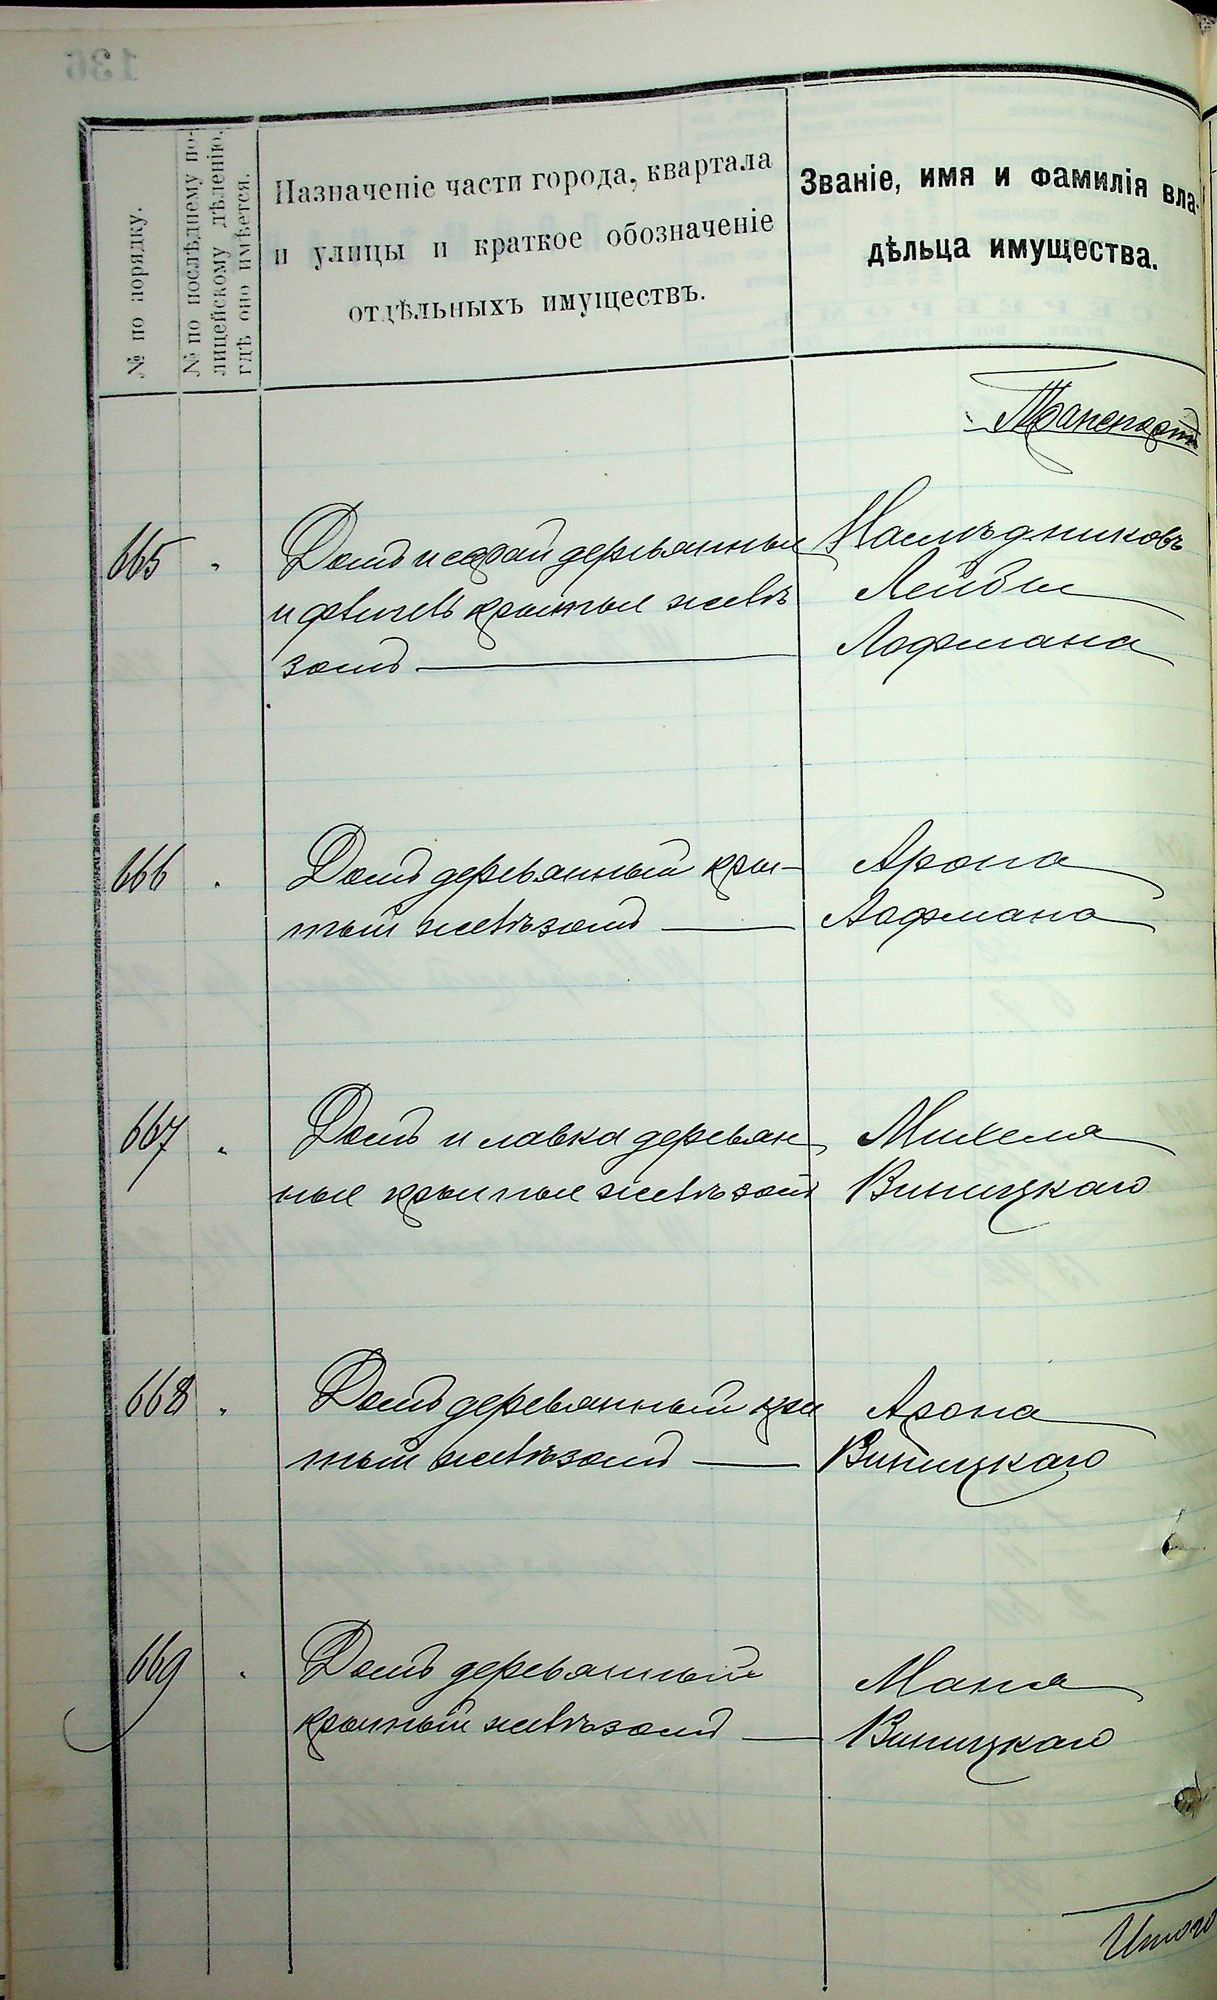 № по порядку.
№ по послѣднему по-
лицейскому дѣленію,
гдѣ оно имѣется.
Назначеніе части города, квартала
и улицы и краткое обозначеніе
отдѣльныхъ имуществъ.
Званіе, имя и фамилія вла-
дѣльца имущества.
Транспортъ
665 Домъ и сарай деревянные Наслѣдниковъ
и флигель крытые желѣ Лейбы
зомъ Лофмана
666 Домъ деревянный кры- Арона
тый желѣзомъ Лофмана
667 Домъ и лавка деревян Михеля
ные крытые желѣзомъ Виницкаго
668 Домъ деревянный кры Арона
тый желѣзомъ Виницкаго
669 Домъ деревянный Маня
крытый желѣзомъ Виницкаго
Итого